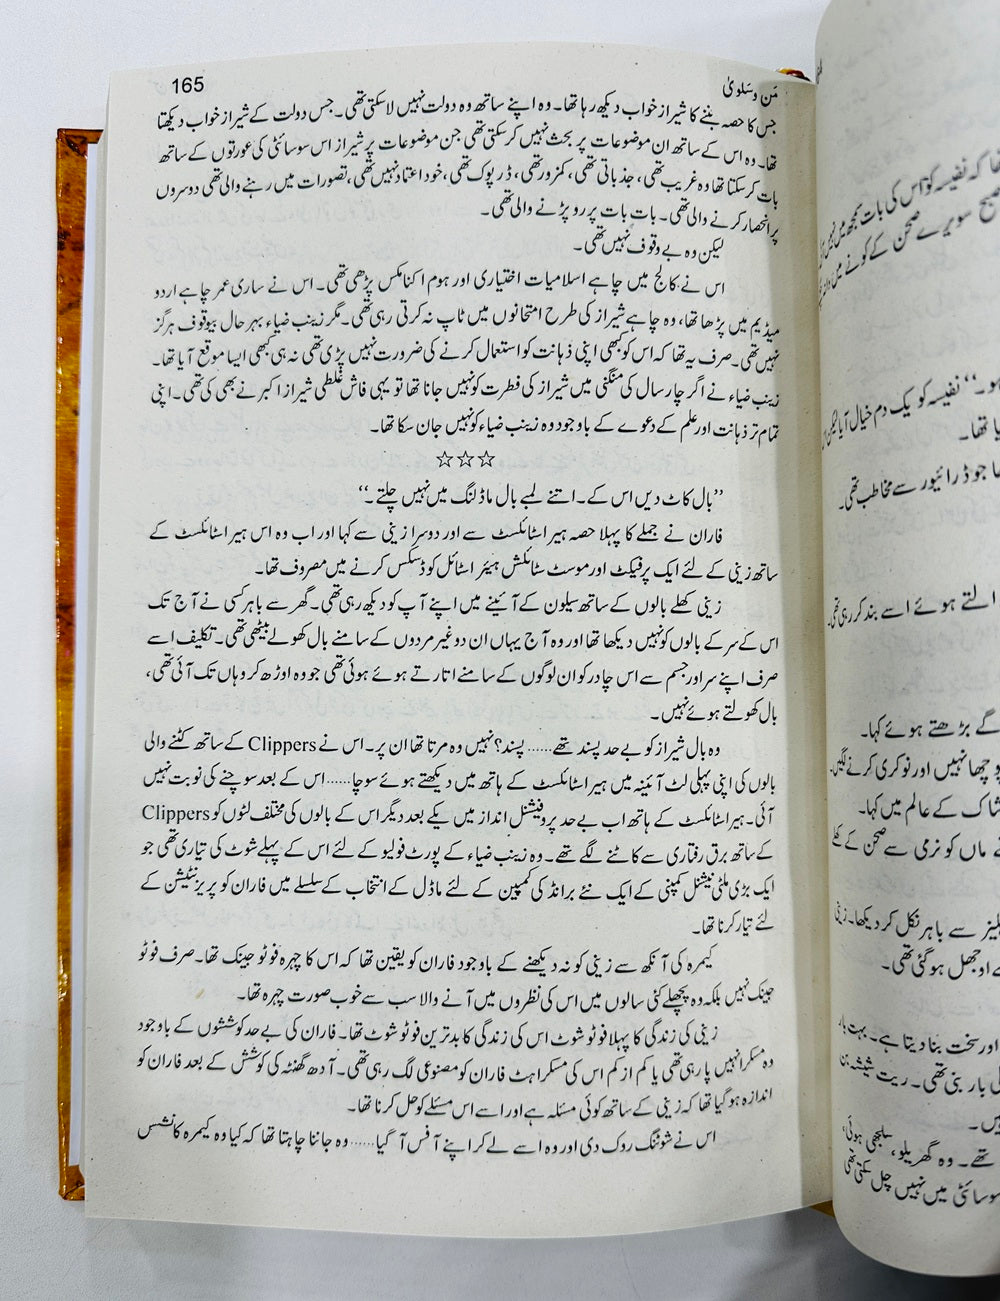 165
مَن و سَلویٰ
جس کا حصہ بننے کا شیراز خواب دیکھ رہا تھا۔ وہ اپنے ساتھ وہ دولت نہیں لا سکتی تھی۔ جس دولت کے شیراز خواب دیکھتا
تھا۔ وہ اس کے ساتھ ان موضوعات پر بحث نہیں کر سکتی تھی جن موضوعات پر شیراز اس سوسائٹی کی عورتوں کے ساتھ
بات کر سکتا تھا وہ غریب تھی، جذباتی تھی، کمزور تھی، ڈرپوک تھی، خود اعتماد نہیں تھی، تصورات میں رہنے والی تھی دوسروں
پر انحصار کرنے والی تھی۔ بات بات پر رو پڑنے والی تھی۔
لیکن وہ بے وقوف نہیں تھی۔
اس نے کالج میں چاہے اسلامیات اختیاری اور ہوم اکنامکس پڑھی تھی۔ اس نے ساری عمر چاہے اردو
میڈیم میں پڑھا تھا، وہ چاہے شیراز کی طرح امتحانوں میں ٹاپ نہ کرتی رہی تھی۔ مگر زینب ضیاء بہرحال بیوقوف ہرگز
نہیں تھی۔ صرف یہ تھا کہ اس کو کبھی اپنی ذہانت کو استعمال کرنے کی ضرورت نہیں پڑی تھی نہ ہی کبھی ایسا موقع آیا تھا۔
زینب ضیاء نے اگر چار سال کی منگنی میں شیراز کی فطرت کو نہیں جانا تھا تو یہی فاش غلطی شیراز اکبر نے بھی کی تھی۔ اپنی
تمام تر ذہانت اور علم کے دعوے کے باوجود وہ زینب ضیاء کو نہیں جان سکا تھا۔
☆☆☆
’’بال کاٹ دیں اس کے۔ اتنے لمبے بال ماڈلنگ میں نہیں چلتے۔‘‘
فاران نے جملے کا پہلا حصہ ہیر اسٹائلسٹ سے اور دوسرا زینی سے کہا اور اب وہ اس ہیر اسٹائلسٹ کے
ساتھ زینی کے لئے ایک پرفیکٹ اور موسٹ سٹائلش ہیئر اسٹائل کو ڈسکس کرنے میں مصروف تھا۔
زینی کھلے بالوں کے ساتھ سیلون کے آئینے میں اپنے آپ کو دیکھ رہی تھی۔ گھر سے باہر کسی نے آج تک
اس کے سر کے بالوں کو نہیں دیکھا تھا اور وہ آج یہاں ان دو غیر مردوں کے سامنے بال کھولے بیٹھی تھی۔ تکلیف اسے
صرف اپنے سر اور جسم سے اس چادر کو ان لوگوں کے سامنے اتارتے ہوئے ہوئی تھی جو وہ اوڑھ کر وہاں تک آئی تھی،
بال کھولتے ہوئے نہیں۔
وہ بال شیراز کو بے حد پسند تھے...... پسند؟ نہیں وہ مرتا تھا ان پر۔ اس نے Clippers کے ساتھ کٹنے والی
بالوں کی اپنی پہلی لٹ آئینہ میں ہیر اسٹائلسٹ کے ہاتھ میں دیکھتے ہوئے سوچا...... اس کے بعد سوچنے کی نوبت نہیں
آئی۔ ہیر اسٹائلسٹ کے ہاتھ اب بے حد پروفیشنل انداز میں یکے بعد دیگر اس کے بالوں کی مختلف لٹوں کو Clippers
کے ساتھ برق رفتاری سے کاٹنے لگے تھے۔ وہ زینب ضیاء کے پورٹ فولیو کے لئے اس کے پہلے شوٹ کی تیاری تھی جو
ایک بڑی ملٹی نیشنل کمپنی کے ایک نئے برانڈ کی کمپین کے لئے ماڈل کے انتخاب کے سلسلے میں فاران کو پریزنٹیشن کے
لئے تیار کرنا تھا۔
کیمرہ کی آنکھ سے زینی کو نہ دیکھنے کے باوجود فاران کو یقین تھا کہ اس کا چہرہ فوٹو جینک تھا۔ صرف فوٹو
جینک نہیں بلکہ وہ پچھلے کئی سالوں میں اس کی نظروں میں آنے والا سب سے خوب صورت چہرہ تھا۔
زینی کی زندگی کا پہلا فوٹو شوٹ اس کی زندگی کا بدترین فوٹو شوٹ تھا۔ فاران کی بے حد کوششوں کے باوجود
وہ مسکرا نہیں پا رہی تھی یا کم از کم اس کی مسکراہٹ فاران کو مصنوعی لگ رہی تھی۔ آدھ گھنٹہ کی کوشش کے بعد فاران کو
اندازہ ہو گیا تھا کہ زینی کے ساتھ کوئی مسئلہ ہے اور اسے اس مسئلے کو حل کرنا تھا۔
اس نے شوٹنگ روک دی اور وہ اسے لے کر اپنے آفس آ گیا...... وہ جاننا چاہتا تھا کہ کیا وہ کیمرہ کانشس
کہ نفیسہ کو اس کی بات سمجھ میں نہیں
صبح سویرے صحن کے کونے میں
ہو۔‘‘ نفیسہ کو یک دم خیال آیا لیکن
یا تھا۔
جو ڈرائیور سے مخاطب تھی۔
التے ہوئے اسے بند کر رہی تھی۔
گے بڑھتے ہوئے کہا۔
پوچھا نہیں اور نوکری کرنے لگیں۔
شاک کے عالم میں کہا۔
ماں کو نرمی سے صحن کے کھلے
لیز سے باہر نکل کر دیکھا۔ زینی
اوجھل ہو گئی تھی۔
اور سخت بنا دیتا ہے۔ بہت بار
بار بنی تھی۔ ریت شیشہ بن
یں۔
تھے۔ وہ گھریلو، سلجھی ہوئی،
سوسائٹی میں نہیں چل سکتی تھی